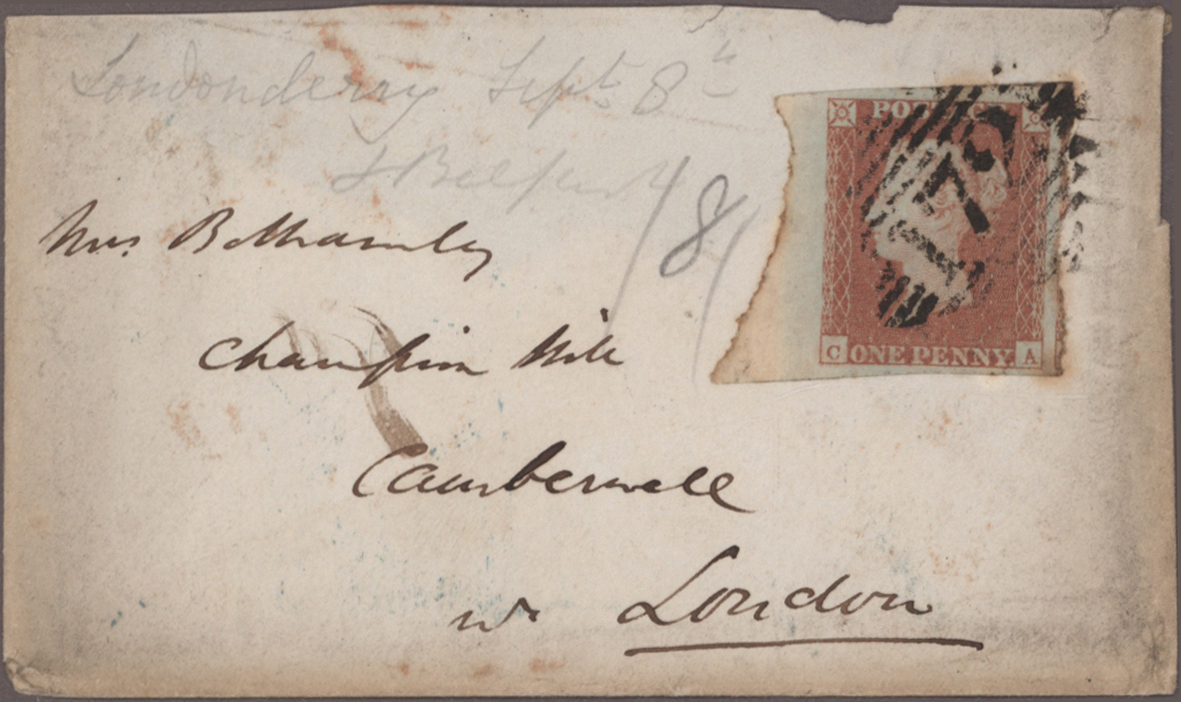 Londonderry Sept. 8th
& Belfast /8/
Mrs. Bethamley
Champion Hill
Camberwell
nr. London
POSTAGE
172
C ONE PENNY. A